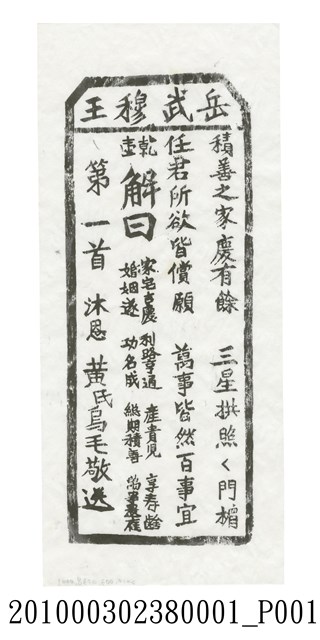 岳武穆王
積善之家慶有餘 三星拱照く門楣
任君所欲皆償願 萬事皆然百事宜
乾
壺 解曰
家宅吉慶 利路亨通 產貴見 享春齡
婚姻遂 功名成 繼期積善
第一首 沐恩 黃氏烏毛敬送
201000302380001_P001